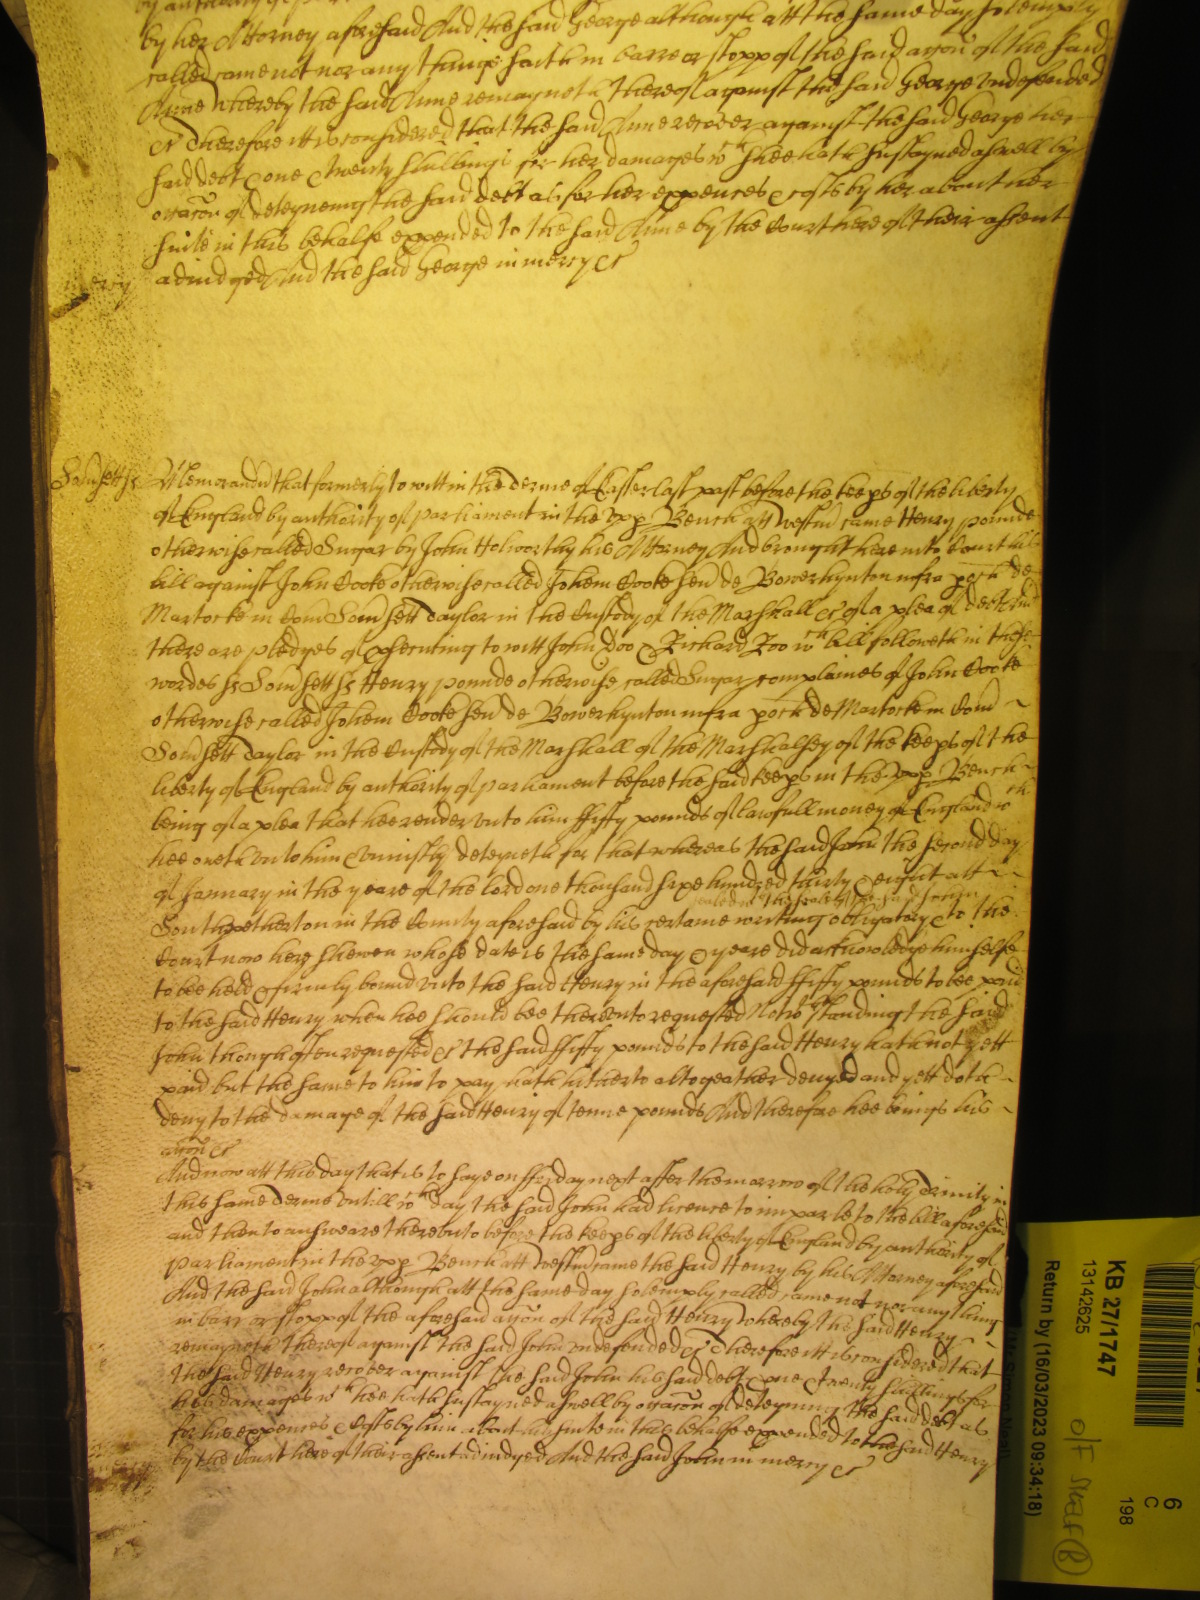 by her Attorney aforesaid And the said George although att the same day solemply
called came not nor any thinge saith in barre or stopp of the said accon of the said
Anne whereby the said Anne remayneth thereof against the said George undefended
&c Therefore itt is considered that the said Anne recover against the said George her
said debt & one & twenty shillings for her damages wch shee hath susteyned aswell by
occacon of deteyneing the said debt as for her expences & costs by her about her
suite in this behalfe expended to the said Anne by the Court here of their assent
adiudged And the said George in mercy &c
mercy
Somsett ss Memorandum that formerly to witt in the Terme of Easter last past before the keeps of the liberty
of England by authority of parliament in the upp Bench att Westm came Henry pounde
otherwise called Sugar by John Holworthy his Attorney And brought here into Court his
bill against John Cooke otherwise called Johem Cooke sen de Bowerhynton infra poch de
Martocke in Com Somsett Taylor in the Custody of the Marshall &c of a plea of debt And
there are pledges of prosecuting to witt John Doo & Richard Roo wch bill followeth in these
wordes ss Somsett ss Henry pounde otherwise called Sugar complaines of John Cooke
otherwise called Johem Cooke sen de Bowerhynton infra poch de Martocke in Com
Somsett Taylor in the Custody of the Marshall of the Marshalsey of the keeps of the
liberty of England by authority of parliament before the said keeps in the upp Bench
being of a plea that hee render unto him ffifty pounds of lawfull money of England wch
hee oweth unto him & uniustly deteyneth for that whereas the said John the second day
of January in the yeare of the lord one thousand sixe hundred thirty & eight att
sealed wth the seale of the said John
South petherton in the County aforesaid by his certaine writting obligatory & to the
Court now here shewen whose date is the same day & yeare did acknowledge himselfe
to bee held & firmly bound unto the said Henry in the aforesaid ffifty pounds to bee paid
to the said Henry when hee should bee thereunto requested Notwthstanding the said
John though often requested &c the said ffifty pounds to the said Henry hath not yett
paid but the same to him to pay hath hitherto altogeather denyed and yett doth
deny to the damage of the said Henry of tenne pounds And therefore hee brings his
accon &c
And now att this day that is to saye on ffryday next after the morrow of the holy Trinity in
this same Terme untill wch day the said John had licence to imparle to the bill aforesaid
and then to answeare thereunto before the keeps of the liberty of England by authority of
parliament in the upp Bench att Westm came the said Henry by his Attorney aforesaid
And the said John although att the same day solemply called came not nor any thing
in barr or stopp of the aforesaid accon of the said Henry whereby the said Henry
remayneth thereof against the said John undefended &c Therefore itt is considered that
the said Henry recover against the said John his said debt & one & twenty shillings for
his damages wch hee hath susteyned aswell by occacon of deteyneing the said debt as
for his expences & costs by him about his suite in this behalfe expended to the said Henry
by the Court here of their assent adiudged And the said John in mercy &c
KB 27/1747
13142625
Return by (16/03/2023 09:34:18)
6
C
198